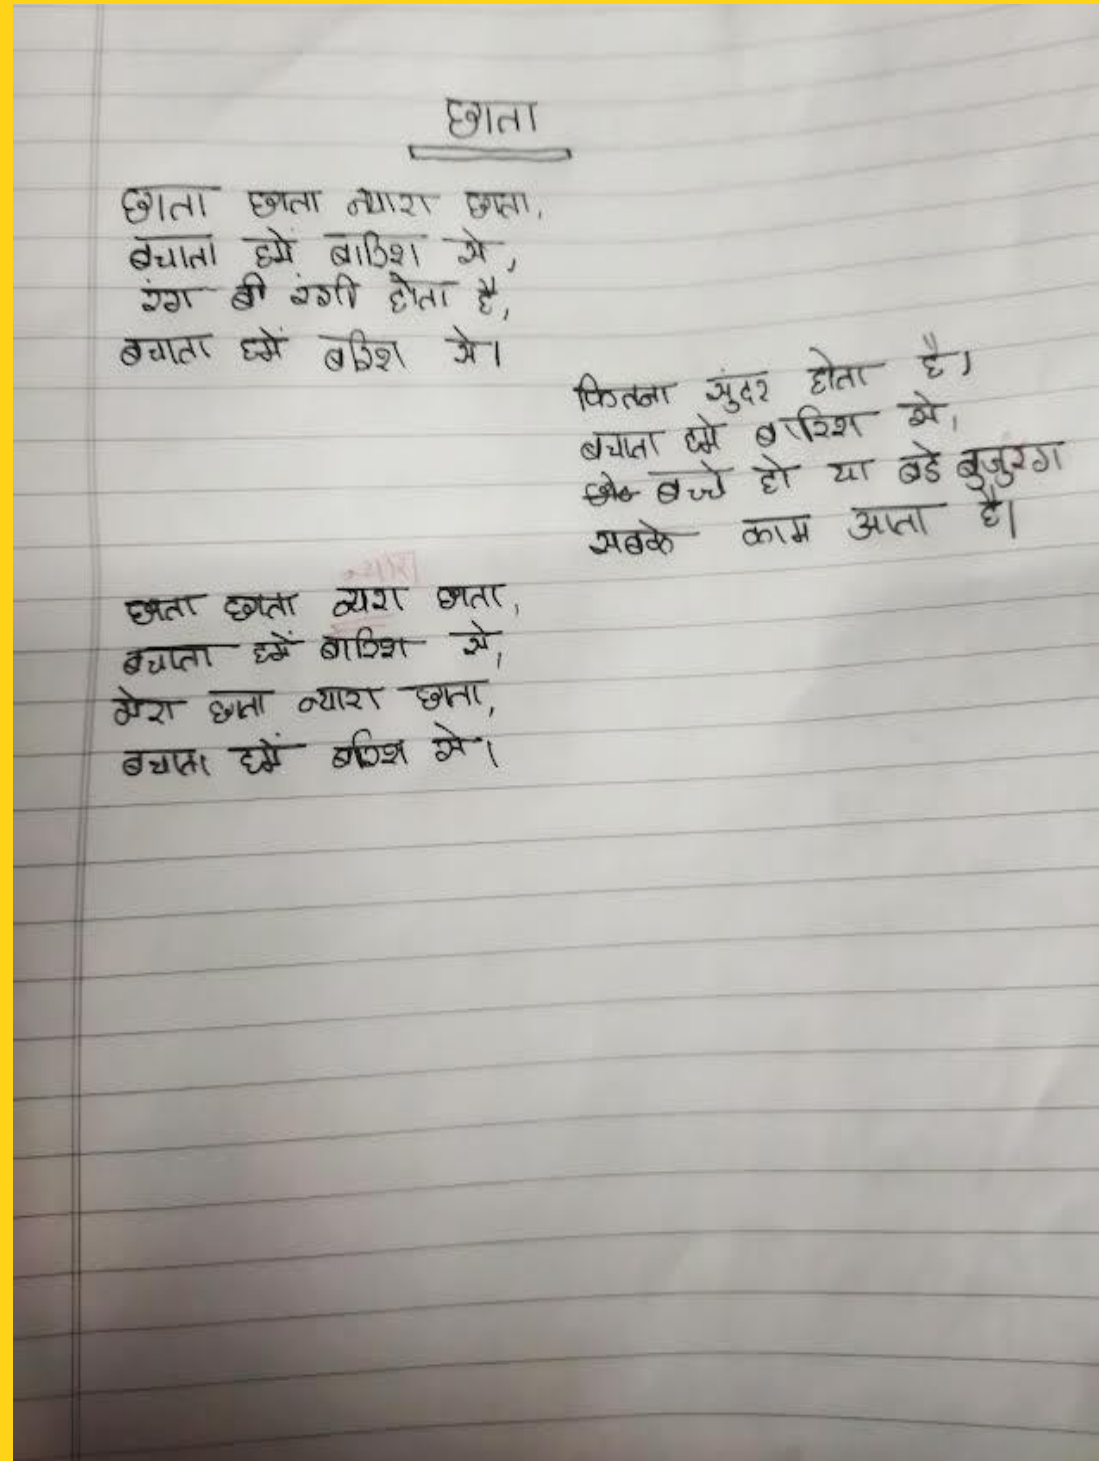 छाता
छाता छाता न्यारा छाता,
बचाता हमें बारिश से,
रंग बी रंगी होता है,
बचाता हमें बारिश से।
कितना सुंदर होता है।
बचाता हमें बारिश से,
बच्चे हो या बडे बुजुरग
सबके काम आता है।
न्यारा
छाता छाता न्यारा छाता,
बचाता हमें बारिश से,
मेरा छाता न्यारा छाता,
बचाता हमें बारिश से।